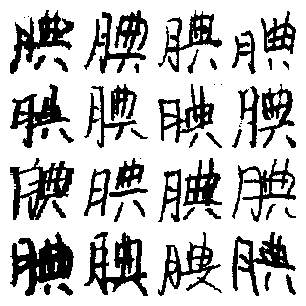 腆腆腆腆
腆腆腆腆
腆腆腆腆
腆腆腆腆